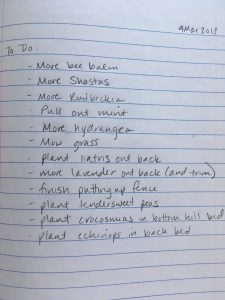 4 Mar 2019
To Do:
- More bee balm
- More Shastas
- More Rudbeckia
- Pull out mint
- More hydrangea
- Mow grass
- plant liatris out back
- more lavender out back (and trim)
- finish putting up fence
- plant tendersweet peas
- plant crocosmias in bottom hill bed
- plant echinops in back bed